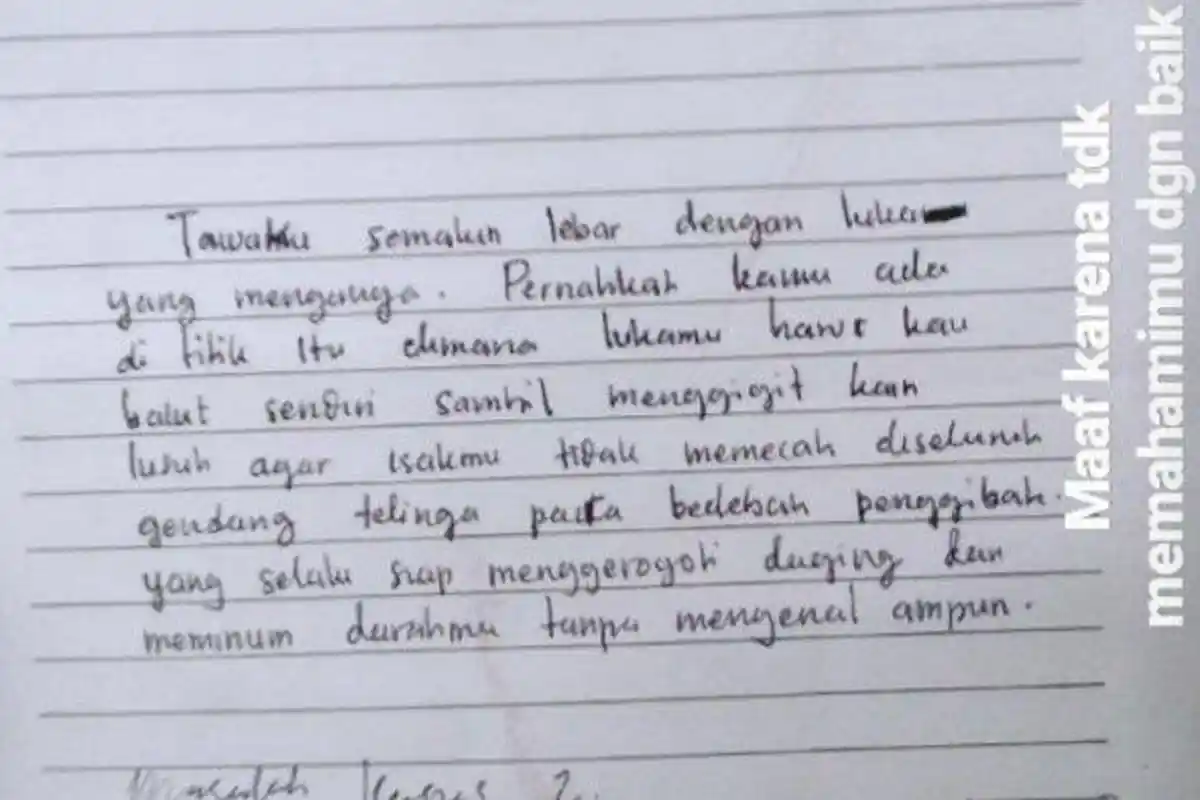 Tawaku semakin lebar dengan luka
yang menganga. Pernahkah kamu ada
di titik itu dimana lukamu harus kau
balut sendiri sambil menggigit kain
lusuh agar isakmu tidak memecah diseluruh
gendang telinga para bedebah penggibah.
yang selalu siap menggerogoti daging dan
meminum darahmu tanpa mengenal ampun.
Maaf karena tdk
memahamimu dgn baik